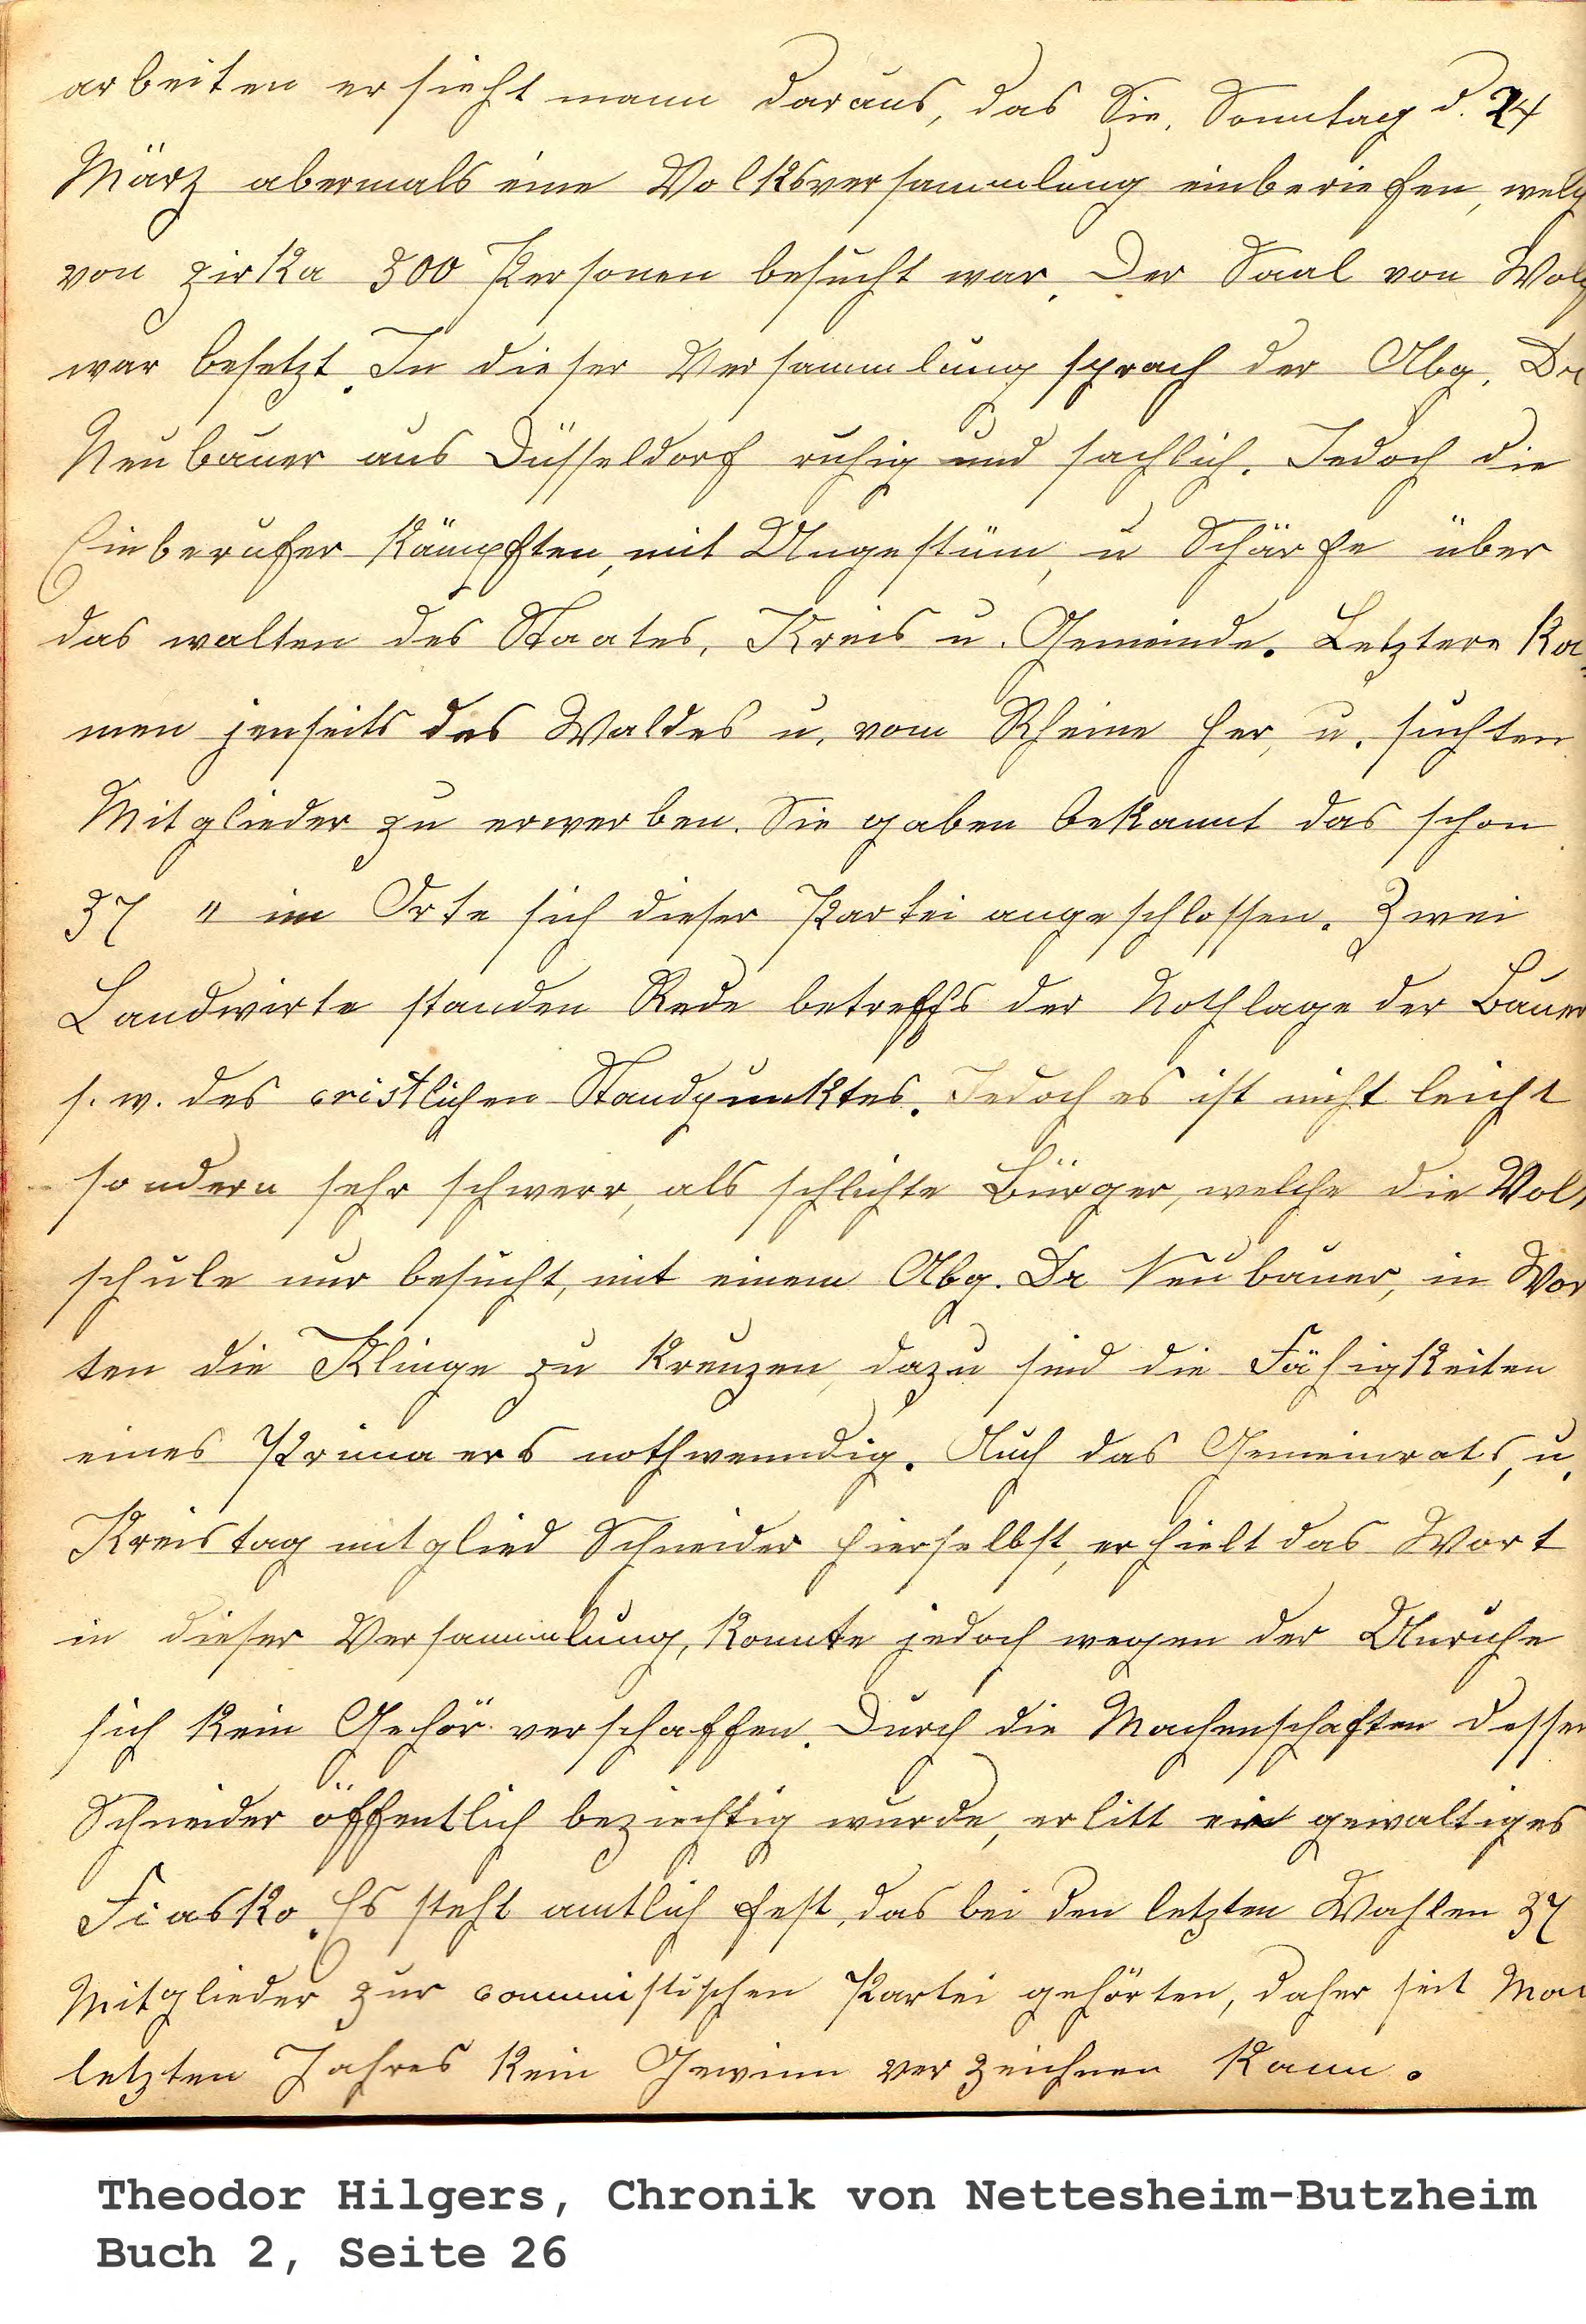 arbeiten ersieht mann daraus, das Sie, Sonntag d. 24
März abermals eine Volksversammlung einberiefen, welch
von zirka 300 Personen besucht war. Der Saal von
war besetzt. In dieser Versammlung sprach der Abg. Dr
Neubauer aus Düsseldorf ruhig und sachlich. Jedoch die
Einberufer kämpften, mit Ungestüm, u Schärfe über
das walten des Staates, Kreis u. Gemeinde. Letztere ka
men jenseits des Waldes u. vom Rheine her, u. suchten
Mitglieder zu erwerben. Sie gaben bekannt das schon
37 " im Orte sich dieser Partei angeschlossen. Zwei
Landwirte standen Rede betreffs der Nothlage der Bauer
s. w. des cristlichen Standpunktes. Jedoch es ist nicht leicht
sondern sehr schwerr, als schlichte Bürger, welche die Vol
schule nur besucht, mit einem Abg. Dr Neubauer, in Wor
ten die Klinge zu kreuzen, dazu sind die Fähigkeiten
eines Primaers nothwenndig. Auch das Gemeinrats, u.
Kreistagmitglied Schneider hierselbst, erhielt das Wort
in dieser Versammlung, konnte jedoch wegen der Unruhe
sich kein Gehör verschaffen. Durch die Machenschaften dessen
Schneider öffentlich beziechtig wurde, erlitt ein gewaltiges
Fiasko. Es steht amtlich fest, das bei den letzten Wahlen 37
Mitglieder zur commistischen Partei gehörten, daher seit Mai
letzten Jahres kein Gewinn verzeichnen kann.
Theodor Hilgers, Chronik von Nettesheim-Butzheim
Buch 2, Seite 26